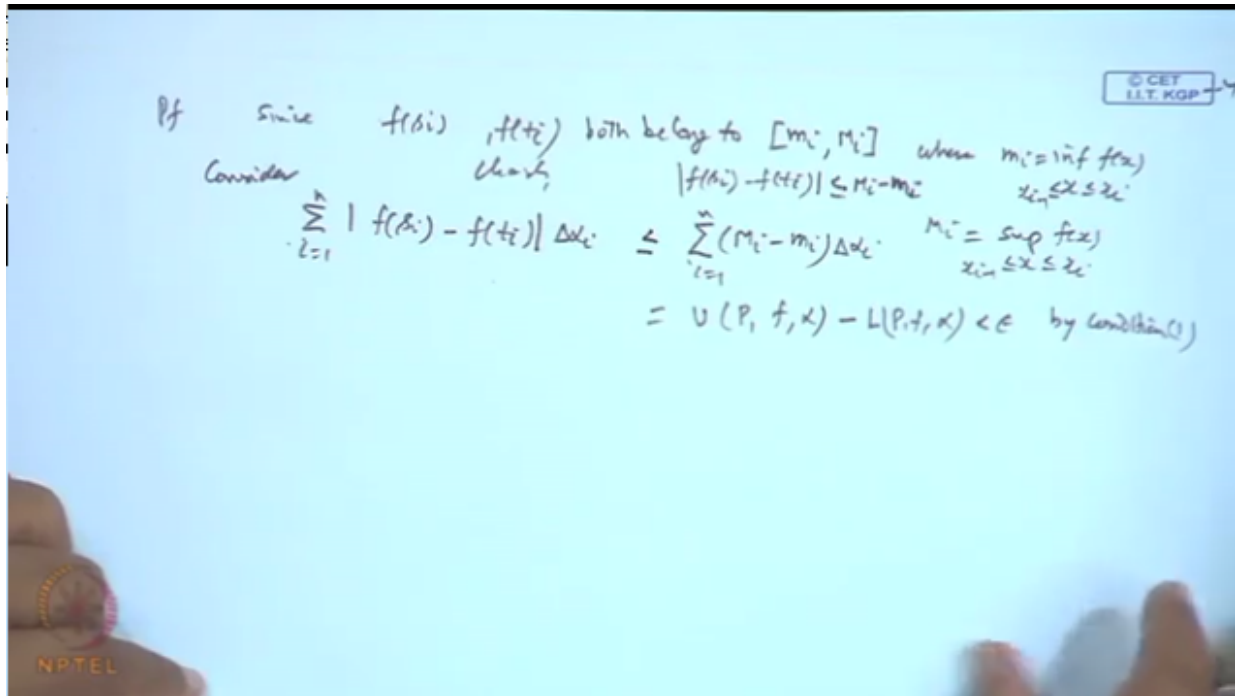 © CET
I.I.T. KGP
Pf Since f(si), f(ti) both belong to [mi, Mi] where mi = inf f(x)
xi-1 ≤ x ≤ xi
Consider |f(si) - f(ti)| ≤ Mi - mi
n∑i=1 | f(si) - f(ti) | Δαi ≤ n∑i=1 (Mi - mi) Δαi Mi = sup f(x)
xi-1 ≤ x ≤ xi
= U(P, f, α) - L(P, f, α) < ε by condition (1)
NPTEL